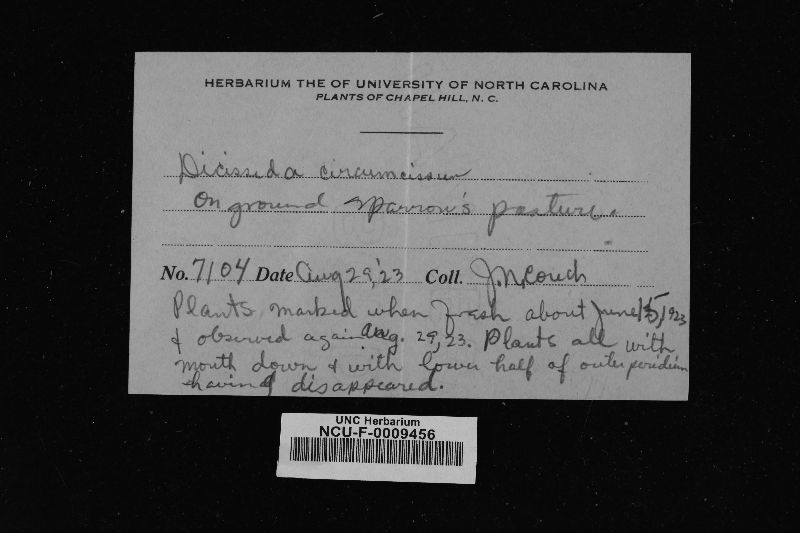 HERBARIUM THE OF UNIVERSITY OF NORTH CAROLINA
PLANTS OF CHAPEL HILL, N. C.
Diciseda circumcissum
On ground Sparrow's pasture.
No. 7104 Date Aug 29, '23 Coll. J. N. Couch
Plants marked when fresh about June 15, 1923
& observed again Aug. 29, 23. Plants all with
mouth down & with lower half of outer peridium
having disappeared.
UNC Herbarium
NCU-F-0009456